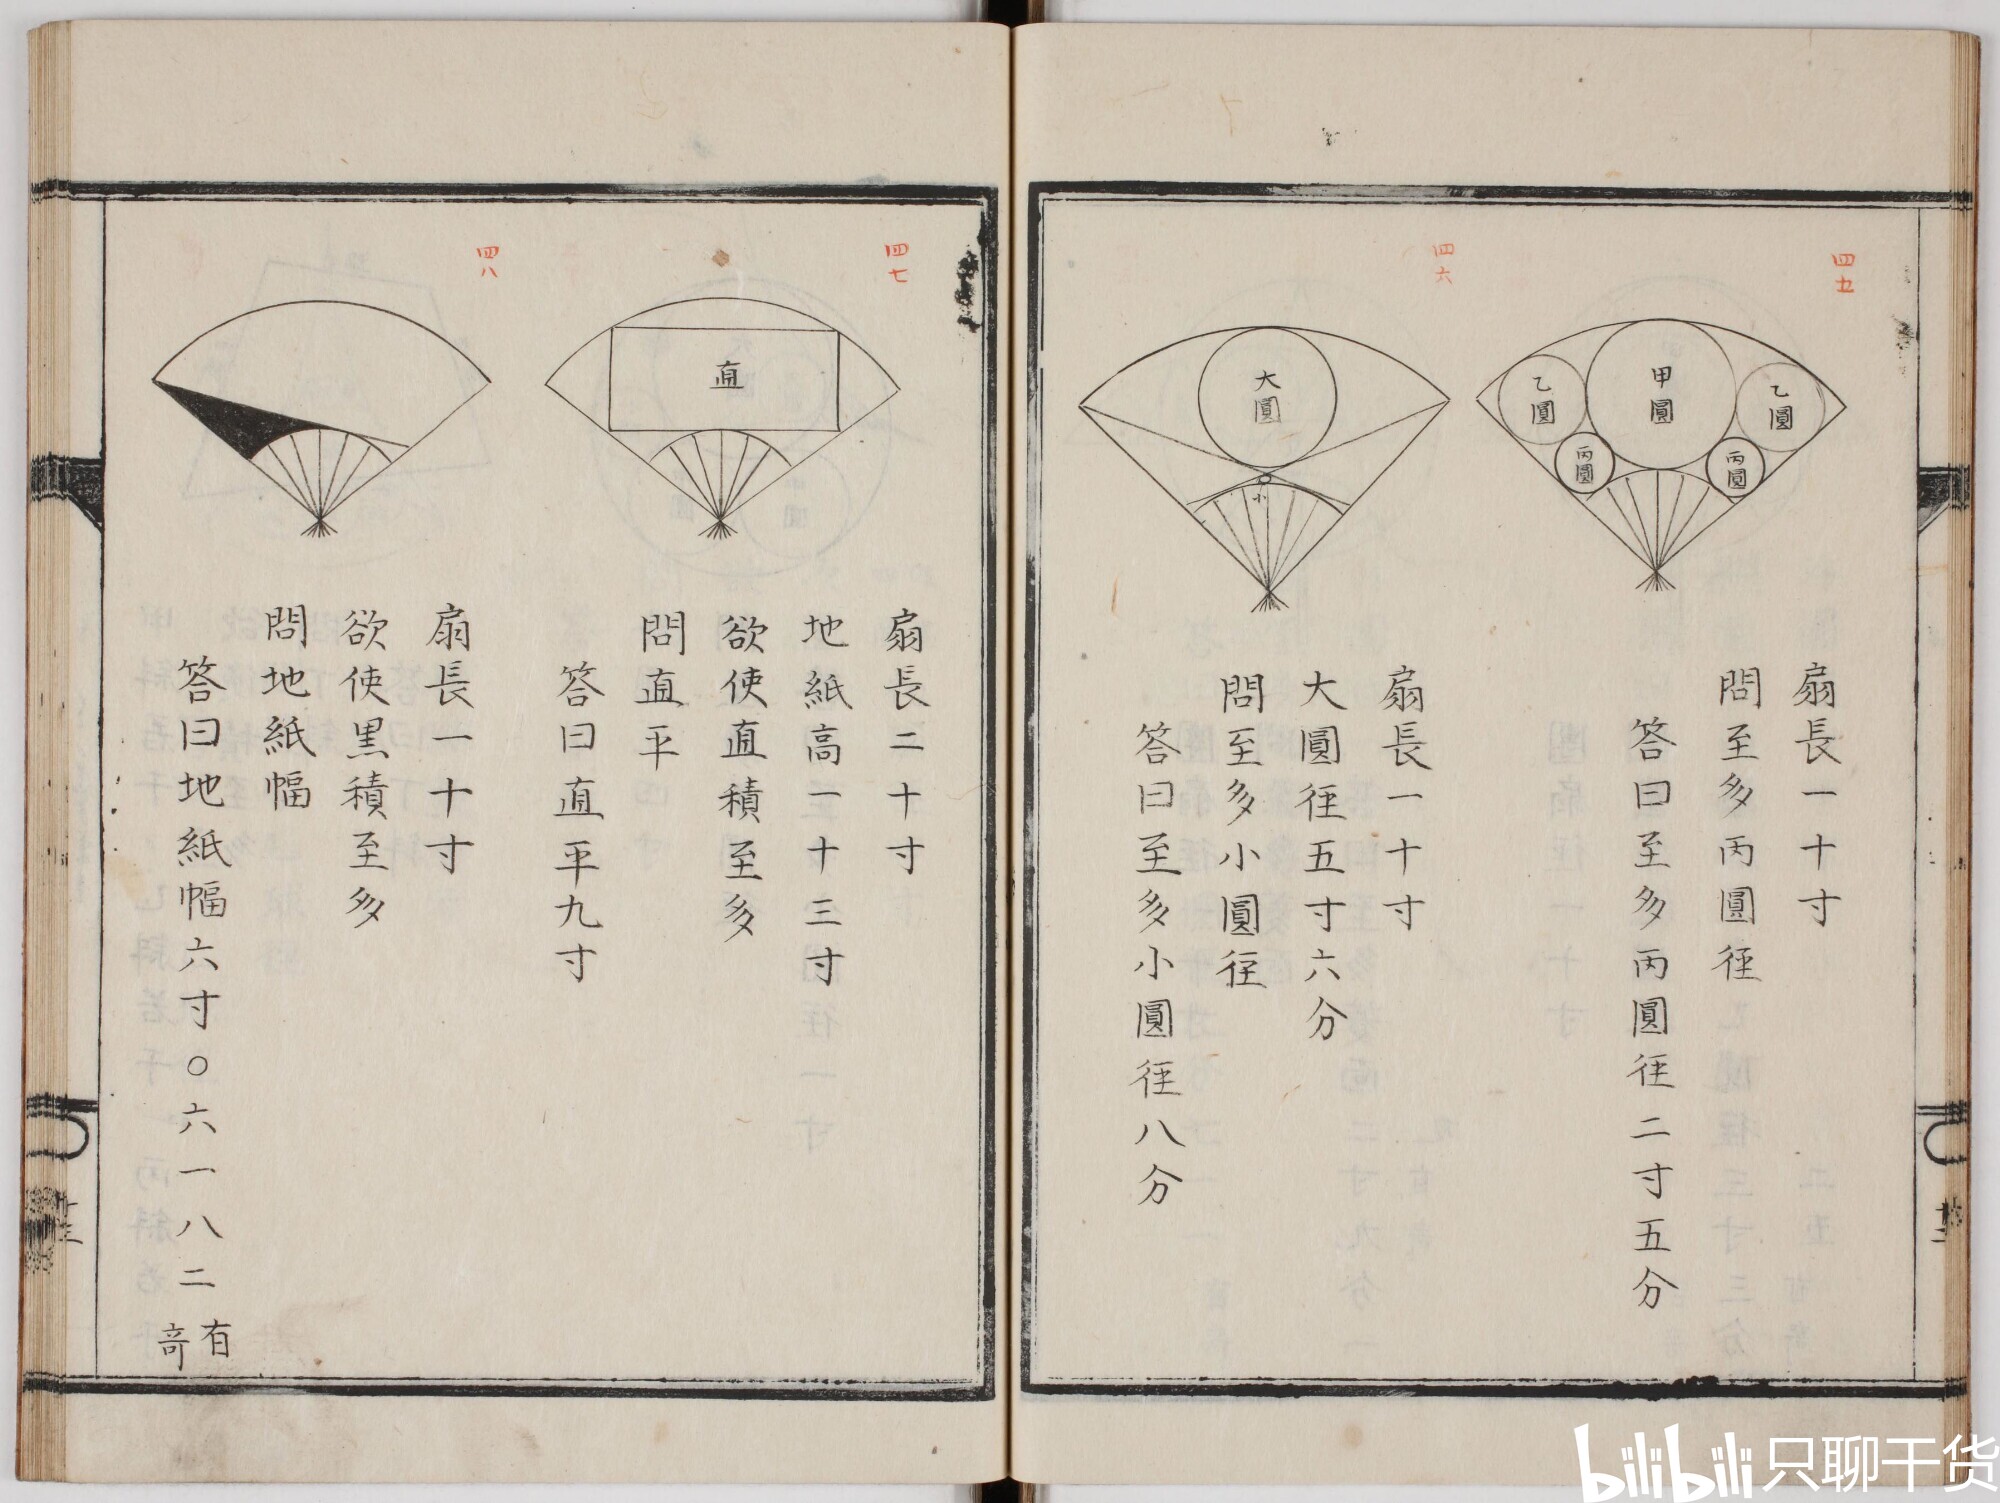 四五
甲圓
乙圓
乙圓
丙圓
丙圓
扇長一十寸
問至多丙圓徑
答曰至多丙圓徑二寸五分
四六
大圓
小
扇長一十寸
大圓徑五寸六分
問至多小圓徑
答曰至多小圓徑八分
四七
直
扇長二十寸
地紙高一十三寸
欲使直積至多
問直平
答曰直平九寸
四八
扇長一十寸
欲使黒積至多
問地紙幅
答曰地紙幅六寸〇六一八二有奇
bilibili 只聊干货